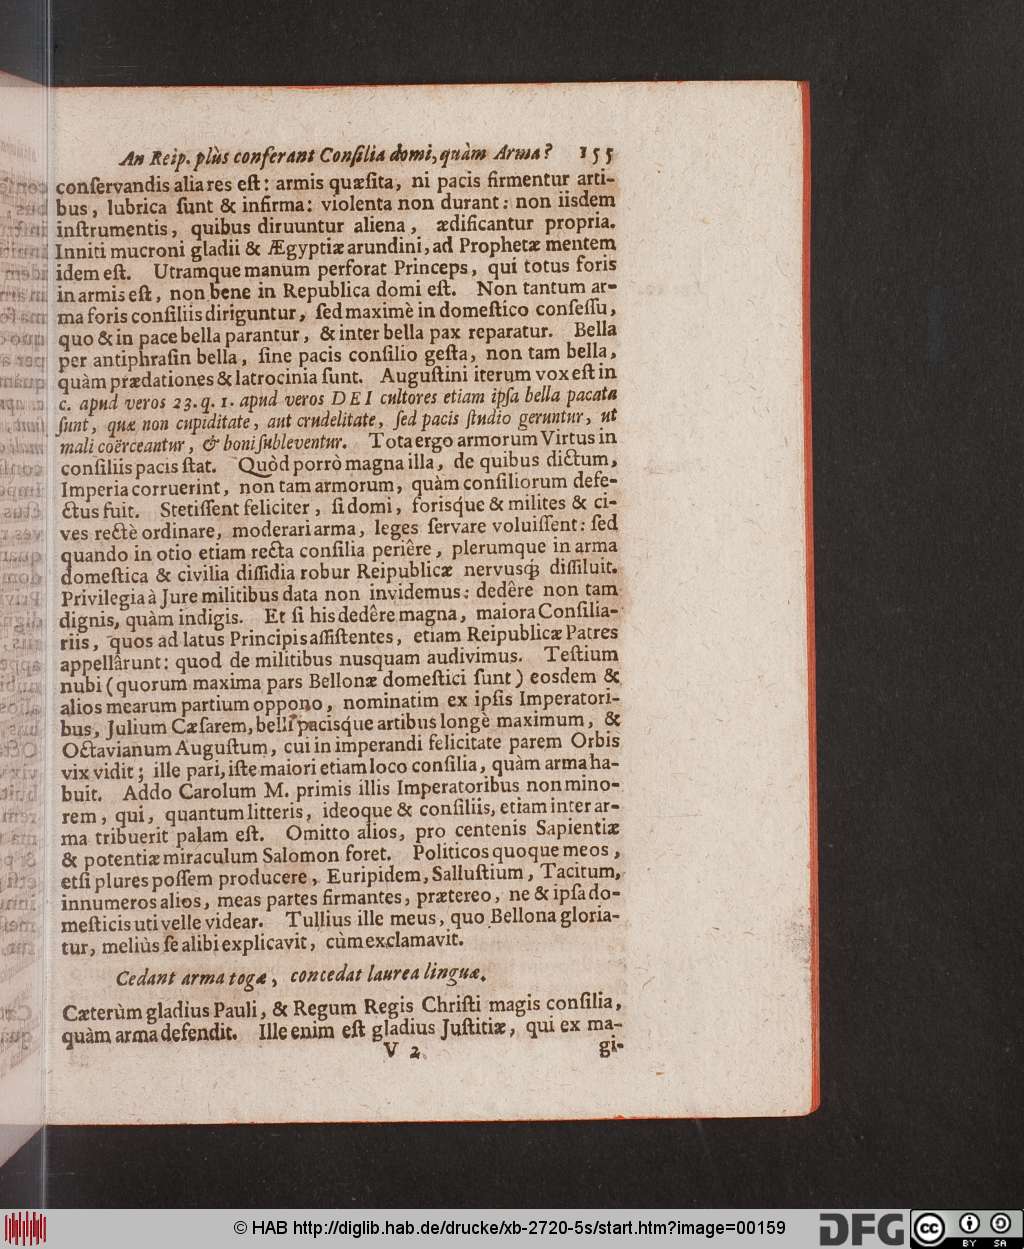 An Reip. plùs conferant Conſilia domi, quàm Arma? 155
conſervandis alia res eſt: armis quæſita, ni pacis firmentur arti-
bus, lubrica ſunt & infirma: violenta non durant: non iisdem
inſtrumentis, quibus diruuntur aliena, ædificantur propria.
Inniti mucroni gladii & Ægyptiæ arundini, ad Prophetæ mentem
idem eſt. Utramque manum perforat Princeps, qui totus foris
in armis eſt, non bene in Republica domi eſt. Non tantum ar-
ma foris conſiliis diriguntur, ſed maximè in domeſtico conſeſſu,
quo & in pace bella parantur, & inter bella pax reparatur. Bella
per antiphraſin bella, ſine pacis conſilio geſta, non tam bella,
quàm prædationes & latrocinia ſunt. Auguſtini iterum vox eſt in
c. apud veros 23. q. 1. apud veros DEI cultores etiam ipſa bella pacata
ſunt, quæ non cupiditate, aut crudelitate, ſed pacis ſtudio geruntur, ut
mali coërceantur, & boni ſubleventur. Tota ergo armorum Virtus in
conſiliis pacis ſtat. Quòd porrò magna illa, de quibus dictum,
Imperia corruerint, non tam armorum, quàm conſiliorum defe-
ctus fuit. Stetiſſent feliciter, ſi domi, forisq́ue & milites & ci-
ves rectè ordinare, moderari arma, leges ſervare voluiſſent: ſed
quando in otio etiam recta conſilia periêre, plerumque in arma
domeſtica & civilia diſſidia robur Reipublicæ nervusq́; diſſiluit.
Privilegia à Jure militibus data non invidemus: dedêre non tam
dignis, quàm indigis. Et ſi his dedêre magna, maiora Conſilia-
riis, quos ad latus Principis aſſiſtentes, etiam Reipublicæ Patres
appellârunt: quod de militibus nusquam audivimus. Teſtium
nubi (quorum maxima pars Bellonæ domeſtici ſunt) eosdem &
alios mearum partium oppono, nominatim ex ipſis Imperatori-
bus, Julium Cæſarem, belli pacisq́ue artibus longè maximum, &
Octavianum Auguſtum, cui in imperandi felicitate parem Orbis
vix vidit; ille pari, iſte maiori etiam loco conſilia, quàm arma ha-
buit. Addo Carolum M. primis illis Imperatoribus non mino-
rem, qui, quantum litteris, ideoque & conſiliis, etiam inter ar-
ma tribuerit palam eſt. Omitto alios, pro centenis Sapientiæ
& potentiæ miraculum Salomon foret. Politicos quoque meos,
etſi plures poſſem producere, Euripidem, Salluſtium, Tacitum,
innumeros alios, meas partes firmantes, prætereo, ne & ipſa do-
meſticis uti velle videar. Tullius ille meus, quo Bellona gloria-
tur, meliùs ſe alibi explicavit, cùm exclamavit.
Cedant arma togæ, concedat laurea linguæ.
Cæterùm gladius Pauli, & Regum Regis Chriſti magis conſilia,
quàm arma defendit. Ille enim eſt gladius Juſtitiæ, qui ex ma-
V 2 gi-
© HAB http://diglib.hab.de/drucke/xb-2720-5s/start.htm?image=00159
DFG
cc BY SA